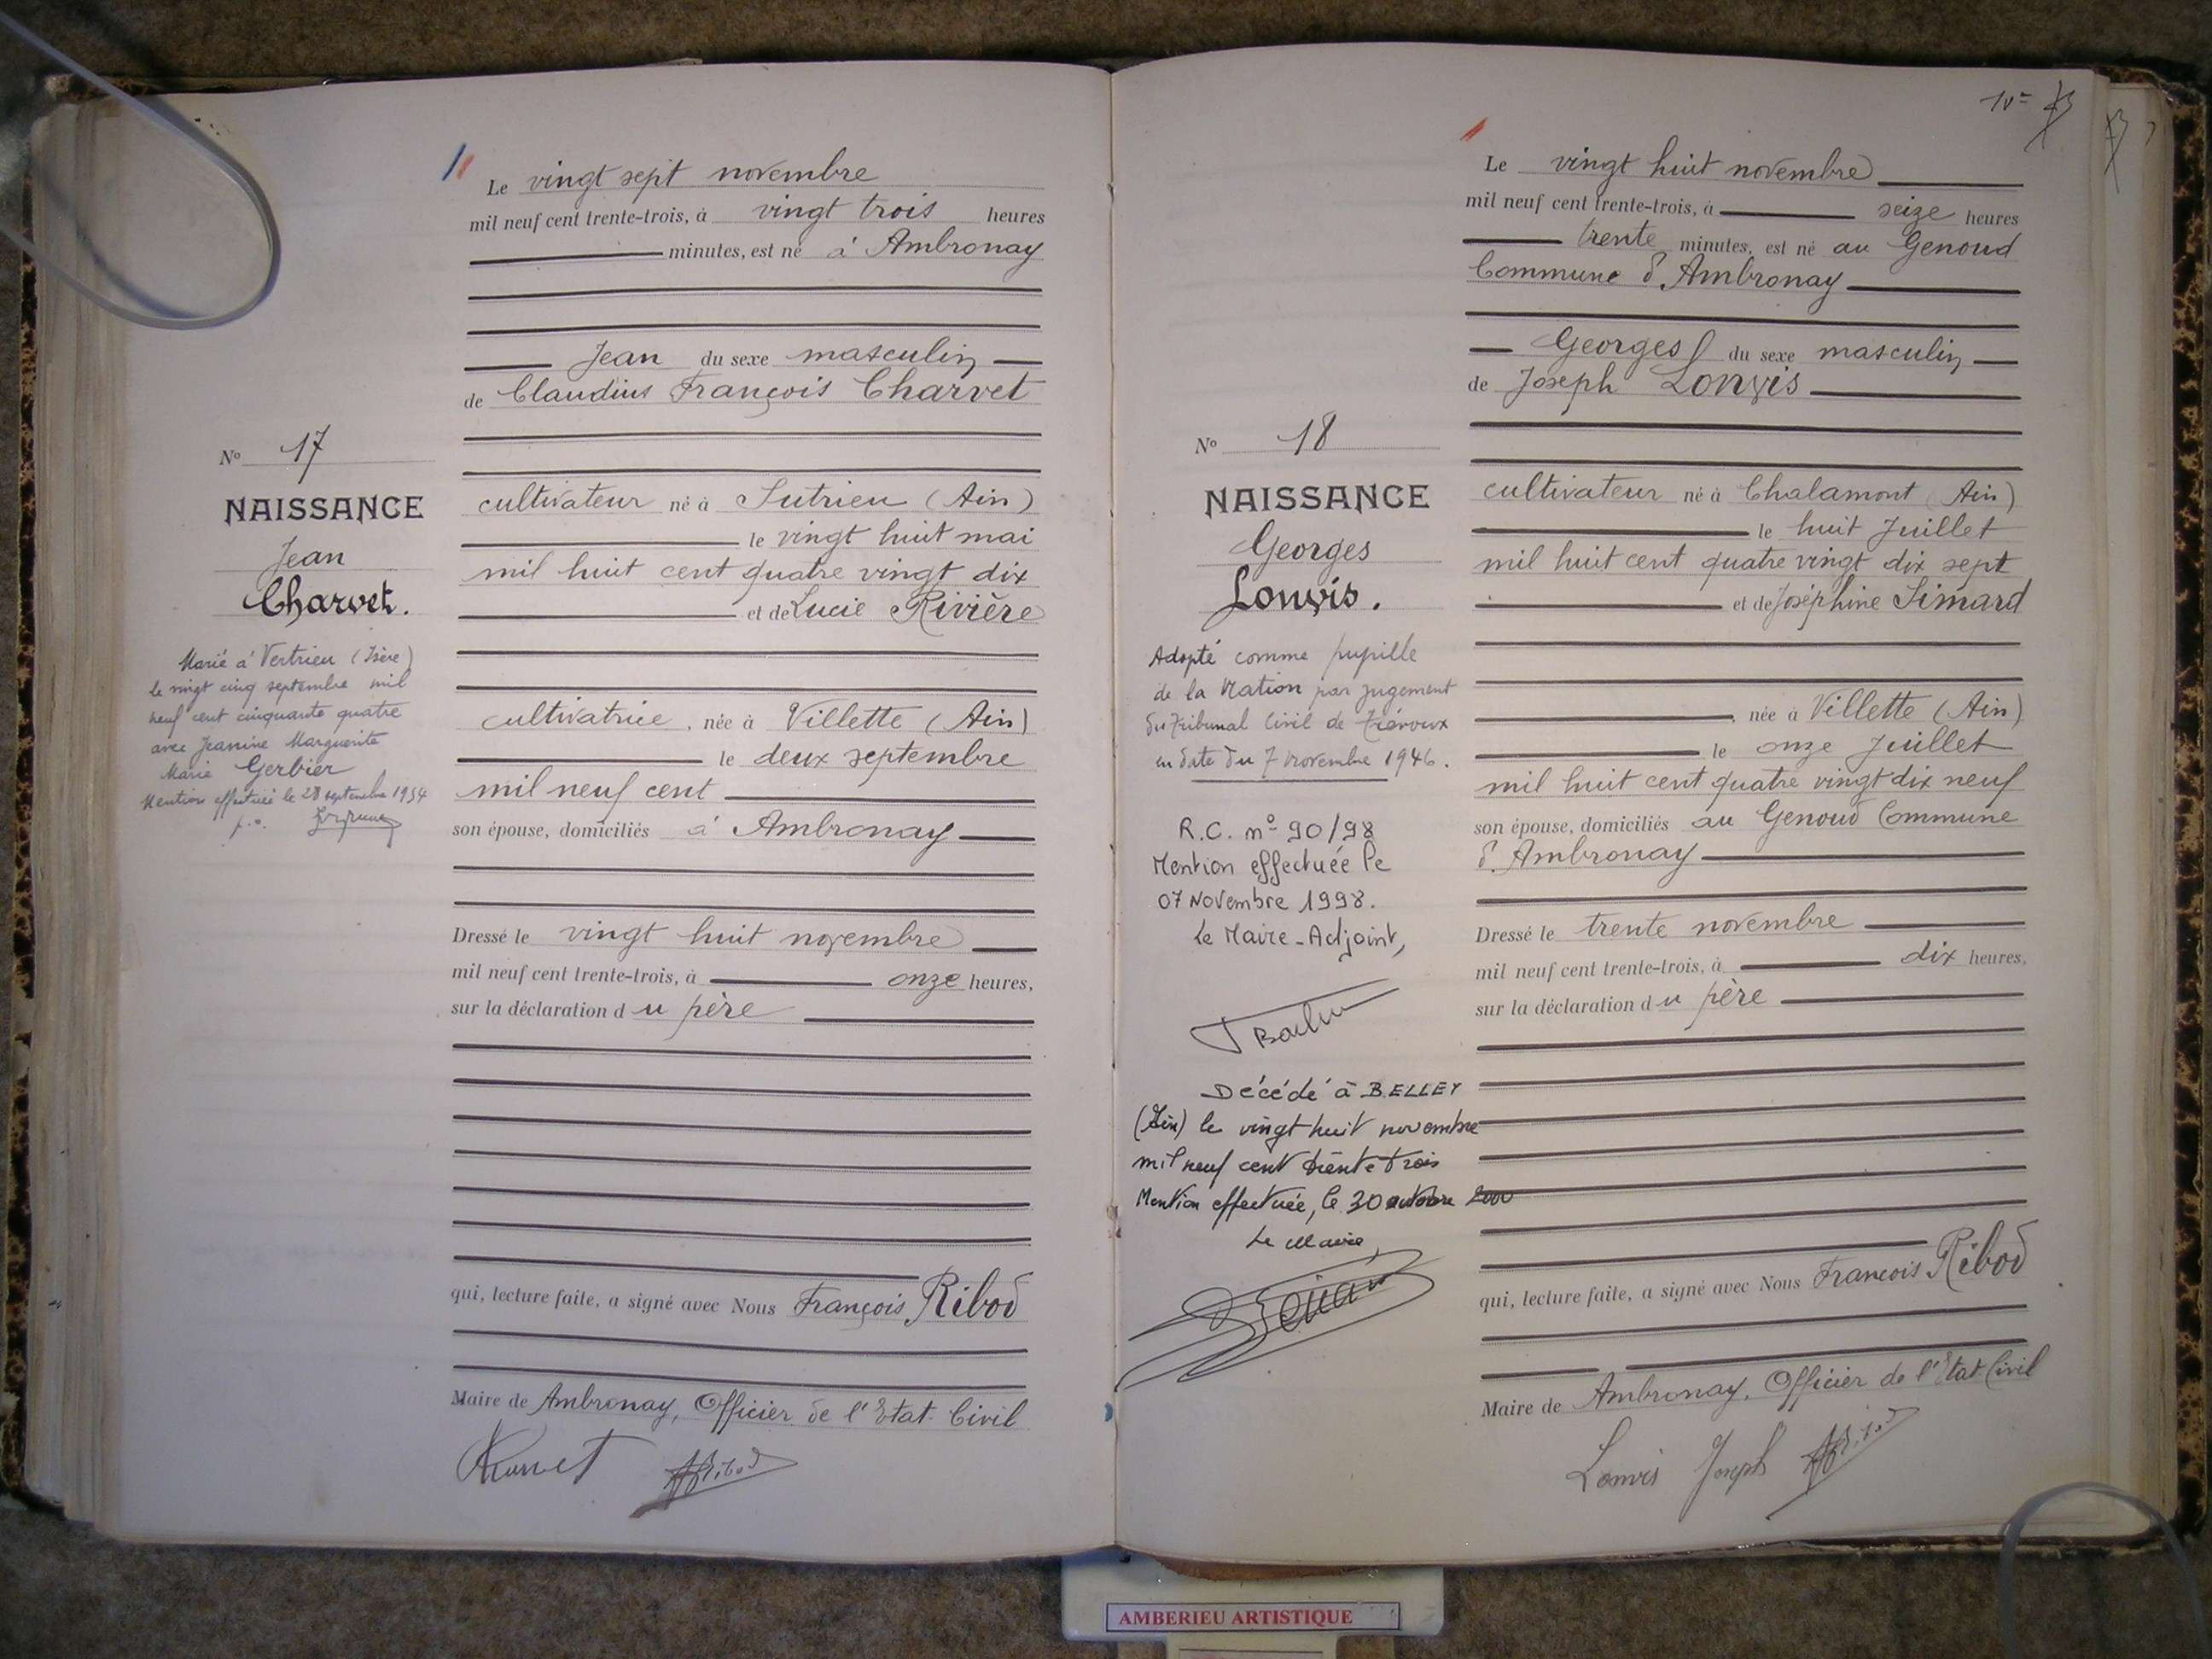 Le vingt sept novembre
mil neuf cent trente-trois, à vingt trois heures
minutes, est né à Ambronay
Jean du sexe masculin
de Claudius François Charvet
N° 17
NAISSANCE
Jean
Charvet.
cultivateur né à Sutrieu (Ain)
le vingt huit mai
mil huit cent quatre vingt dix
et de Lucie Rivière
Marié à Vertrieu (Isère)
le vingt cinq septembre mil
neuf cent cinquante quatre
avec Jeanine Marguerite
Marie Gerbier
Mention effectuée le 28 septembre 1954
p.o.
cultivatrice, née à Villette (Ain)
le deux septembre
mil neuf cent
son épouse, domiciliés à Ambronay
Dressé le vingt huit novembre
mil neuf cent trente-trois, à onze heures,
sur la déclaration du père
qui, lecture faite, a signé avec Nous François Ribod
Maire de Ambronay, Officier de l'Etat-Civil
Charvet Ribod
Le vingt huit novembre
mil neuf cent trente-trois, à seize heures
trente minutes, est né au Genoud
Commune d'Ambronay
Georges du sexe masculin
de Joseph Lonvis
N° 18
NAISSANCE
Georges
Lonvis.
cultivateur né à Chalamont (Ain)
le huit Juillet
mil huit cent quatre vingt dix sept
et de Joséphine Simard
Adopté comme pupille
de la Nation par jugement
du Tribunal Civil de Trévoux
en date du 7 novembre 1946.
R.C. n° 90/98
Mention effectuée le
07 Novembre 1998.
Le Maire-Adjoint,
Décédé à BELLEY
(Ain) le vingt huit novembre
mil neuf cent trente trois
Mention effectuée, le 30 octobre 2000
Le Maire,
née à Villette (Ain)
le onze Juillet
mil huit cent quatre vingt dix neuf
son épouse, domiciliés au Genoud Commune
d'Ambronay
Dressé le trente novembre
mil neuf cent trente-trois, à dix heures,
sur la déclaration du père
qui, lecture faite, a signé avec Nous François Ribod
Maire de Ambronay, Officier de l'Etat-Civil
Lonvis Joseph Ribod
AMBERIEU ARTISTIQUE